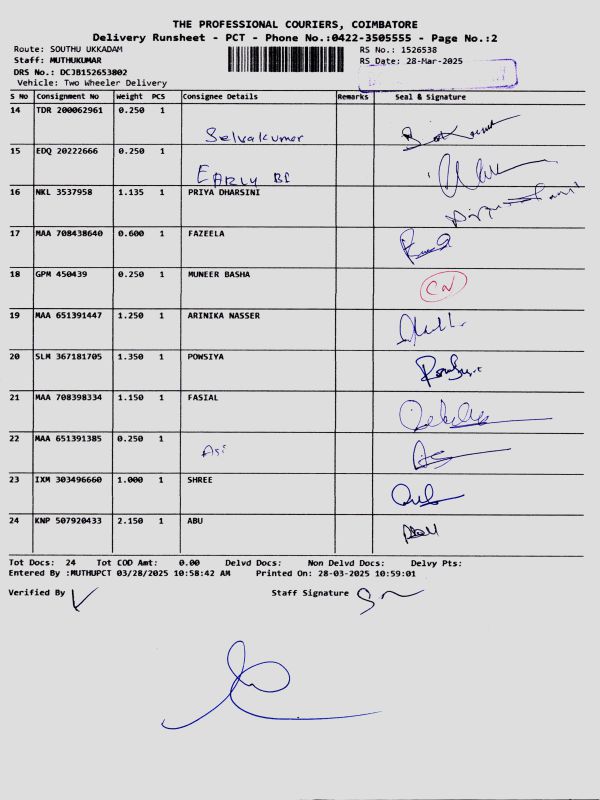 THE PROFESSIONAL COURIERS, COIMBATORE
Delivery Runsheet - PCT - Phone No.:0422-3505555 - Page No.:2
Route: SOUTHU UKKADAM RS No.: 1526538
Staff: MUTHUKUMAR RS Date: 28-Mar-2025
DRS No.: DCJB152653802
Vehicle: Two Wheeler Delivery
S No Consignment No Weight PCS Consignee Details Remarks Seal & Signature
14 TDR 200062961 0.250 1
Selvakumar
15 EDQ 20222666 0.250 1
EARLY BI
16 NKL 3537958 1.135 1 PRIYA DHARSINI
17 MAA 708438640 0.600 1 FAZEELA
18 GPM 450439 0.250 1 MUNEER BASHA
CN
19 MAA 651391447 1.250 1 ARINIKA NASSER
20 SLM 367181705 1.350 1 POWSIYA
21 MAA 708398334 1.150 1 FASIAL
22 MAA 651391385 0.250 1
Asi
23 IXM 303496660 1.000 1 SHREE
24 KNP 507920433 2.150 1 ABU
Tot Docs: 24 Tot COD Amt: 0.00 Delvd Docs: Non Delvd Docs: Delvy Pts:
Entered By :MUTHUPCT 03/28/2025 10:58:42 AM Printed On: 28-03-2025 10:59:01
Verified By Staff Signature